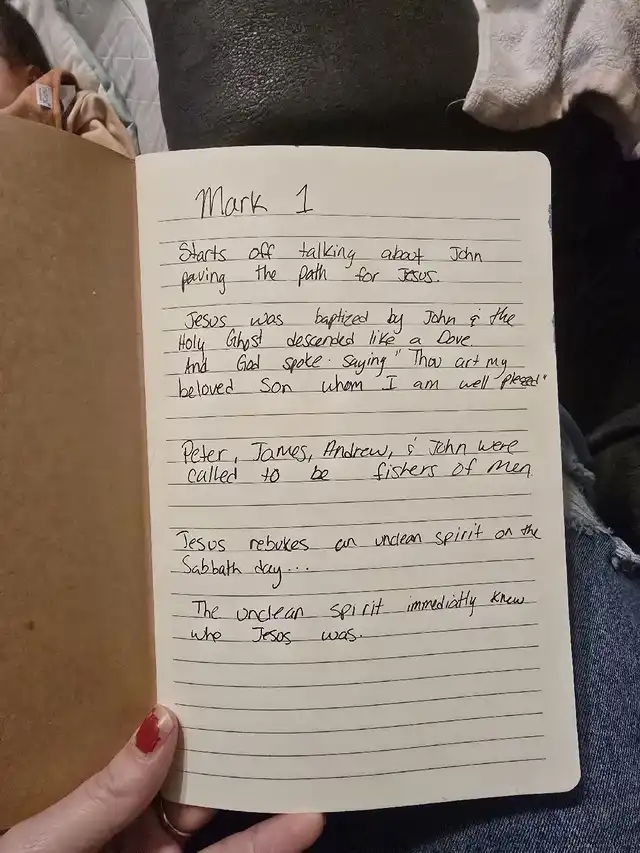 Mark 1
Starts off talking about John
paving the path for Jesus.
Jesus was baptized by John & the
Holy Ghost descended like a Dove.
And God spoke. saying "Thou art my
beloved Son whom I am well pleased"
Peter, James, Andrew, & John were
called to be fishers of men
Jesus rebukes an unclean spirit on the
Sabbath day...
The unclean spirit immediatly knew
who Jesus was.